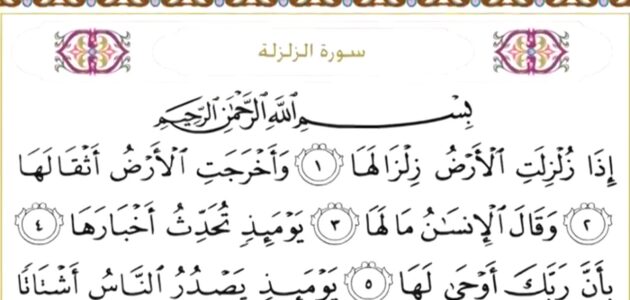 سورة الزلزلة
بِسْمِ اللَّهِ الرَّحْمَٰنِ الرَّحِيمِ
إِذَا زُلْزِلَتِ الْأَرْضُ زِلْزَالَهَا ١ وَأَخْرَجَتِ الْأَرْضُ أَثْقَالَهَا
٢ وَقَالَ الْإِنسَٰنُ مَا لَهَا ٣ يَوْمَئِذٍ تُحَدِّثُ أَخْبَارَهَا ٤
بِأَنَّ رَبَّكَ أَوْحَىٰ لَهَا ٥ يَوْمَئِذٍ يَصْدُرُ النَّاسُ أَشْتَاتًا